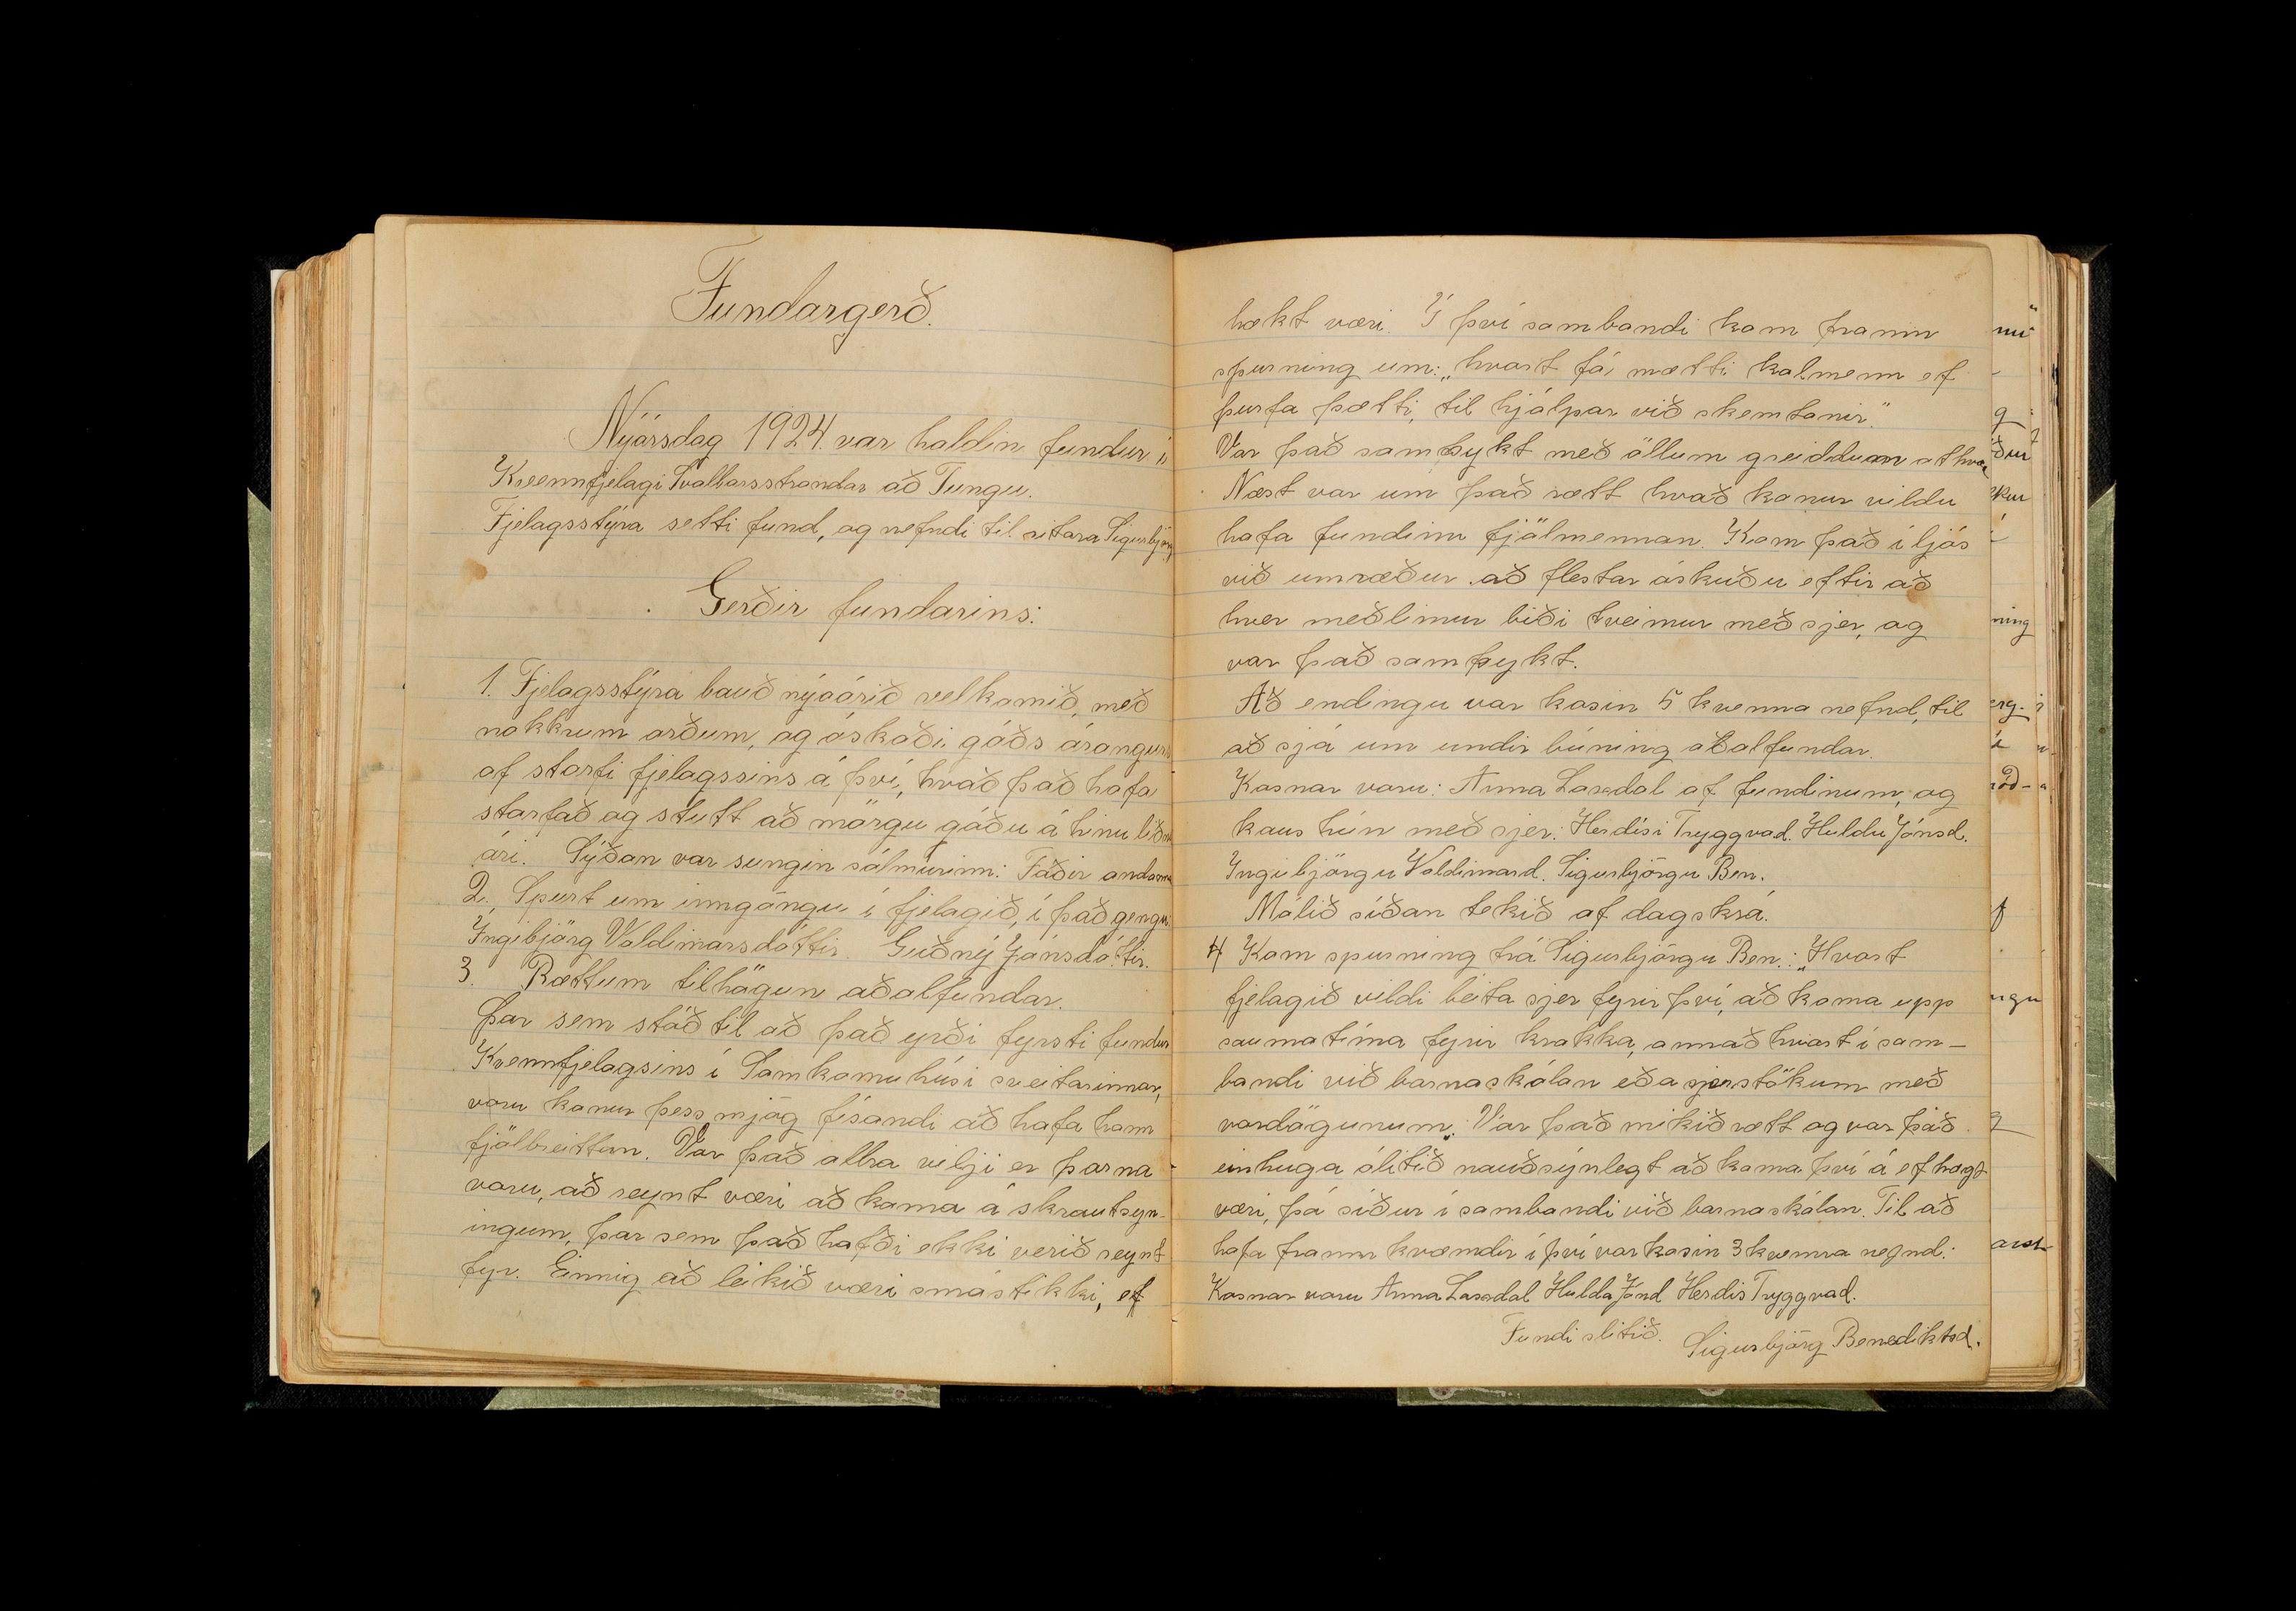 Fundargerð.
Nýársdag 1924. var haldin fundur í
Kvennfjelagi Svalbarsstrandar að Tungu.
Fjelagsstýra setti fund, og nefndi til ritara Sigurbjörg
Gerðir fundarins:
1. Fjelagsstýra bauð nýaárið velkomið, með
nokkrum orðum, og óskaði góðs árangurs
af starfi fjelagssins á því, hvað það hafa
starfað og stutt að mörgu góðu á hinu liðna
ári. Sýðan var sungin sálmurinn: Faðir andanna
2. Spurt um inngöngu í fjelagið, í það gengu
Ingibjörg Valdimarsdóttir. Guðný Jónsdóttir.
3. Rættum tilhögun aðalfundar.
Þar sem stóð til að það yrði fyrsti fundur
Kvennfjelagsins í Samkomuhúsi sveitarinnar,
voru konur þess mjög físandi að hafa hann
fjölbreittan. Var það allra vilji er þarna
voru, að reynt væri að koma á skrautsýn-
ingum, þar sem það hafði ekki verið reynt
fyr. Einnig að leikið væri smástikki, ef
hækt væri. Í því sambandi kom framm
spurning um: „hvort fá mætti kalmenn ef
þurfa þætti, til hjálpar við skemtanir."
Var það samþykt með öllum greiddum atkvæ
Næst var um það rætt hvað konur vildu
hafa fundinn fjölmennan. Kom það í ljós
við umræður að flestar óskuðu eftir að
hver meðlimur biði tveimur með sjer, og
var það samþykt.
Að endingu var kosin 5 kvenna nefnd, til
að sjá um undir búning aðalfundar.
Kosnar voru: Anna Laxdal af fundinum, og
kaus hún með sjer: Herdísi Tryggvad. Huldu Jónsd.
Ingibjörgu Valdimard. Sigurbjörgu Ben.
Málið síðan tekið af dagskrá.
4 Kom spurning frá Sigurbjörgu Ben.: „Hvort
fjelagið vildi beita sjer fyrir því, að koma upp
saumatíma fyrir krakka, annað hvort í sam-
bandi við barnaskólan eða sjerstökum með
vordögunum". Var það mikið rætt og var það
einhuga álitið nauðsýnlegt að koma því á ef hægt
væri, þá síður í sambandi við barnaskólan. Til að
hafa framm kvæmdir í því var kosin 3 kvenna nefnd:
Kosnar voru Anna Laxdal Hulda Jónd Herdis Tryggvad.
Fundi slitið. Sigurbjörg Benediktsd.